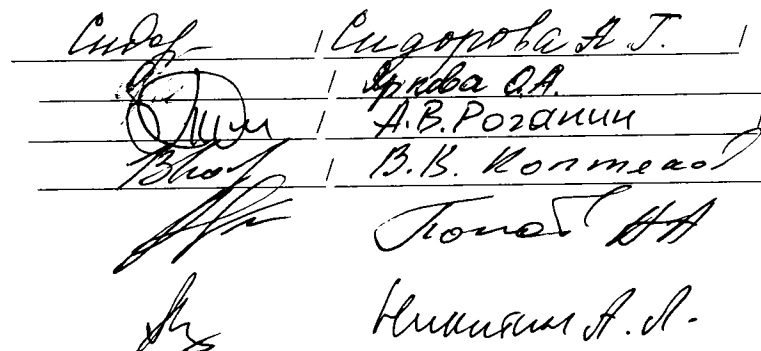 Сидор- / Сидорова А. Г. /
/ Яркова О.А.
/ А.В. Роганин /
/ В.В. Коптелов
Попов НА
Никитин А. Л.